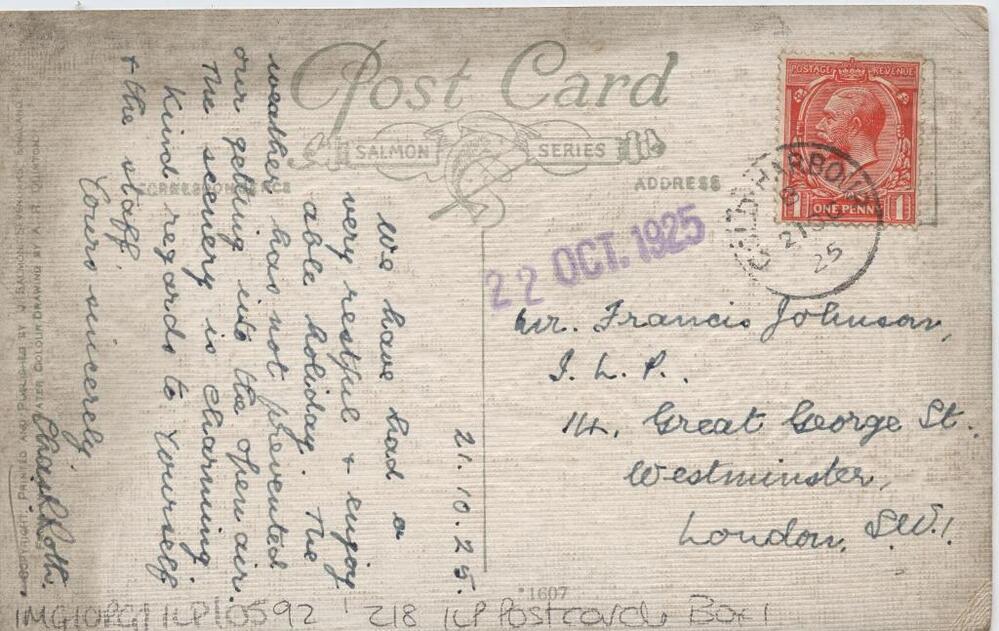 Post Card
SALMON SERIES
CORRESPONDENCE
ADDRESS
POSTAGE REVENUE
ONE PENNY
1 1
HARBOUR
25
22 OCT. 1925
21.10.25.
We have had a
very restful & enjoy
able holiday. The
weather has not prevented
our getting into the open air.
The scenery is charming.
Kind regards to yourself
& the staff.
Yours sincerely
Mr. Francis Johnson,
I. L. P.,
14, Great George St.
Westminster,
London. S.W.1.
COPYRIGHT. PRINTED AND PUBLISHED BY J. SALMON SEVENOAKS ENGLAND
WATER COLOUR DRAWING BY A. R. QUINTON
*1607
218 ILP Postcards Box 1